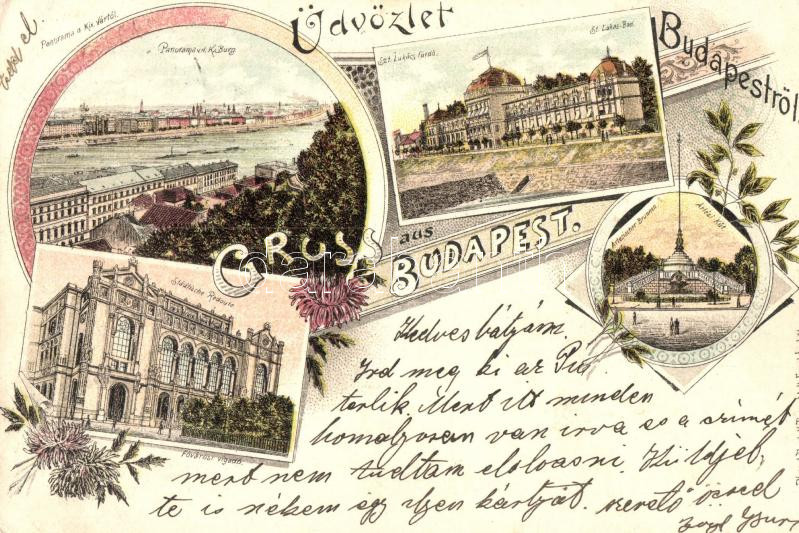 Üdvözlet
Budapestről.
Panorama a Kir. Vártól.
Panorama v. d. K. Burg.
Szt. Lukács fürdő.
St. Lukas-Bad.
Gruss aus
Budapest.
Artesischer Brunnen
Artézi kút.
Städtische Redoute
Fővárosi vigadó.
Kedves bátyám
Ird meg ki az
terlik Mert itt minden
homályosan van irva és a czimét
mert nem tudtam elolvasni. Küldjél
te is nékem egy ilyen kártyát. szerető öcséd